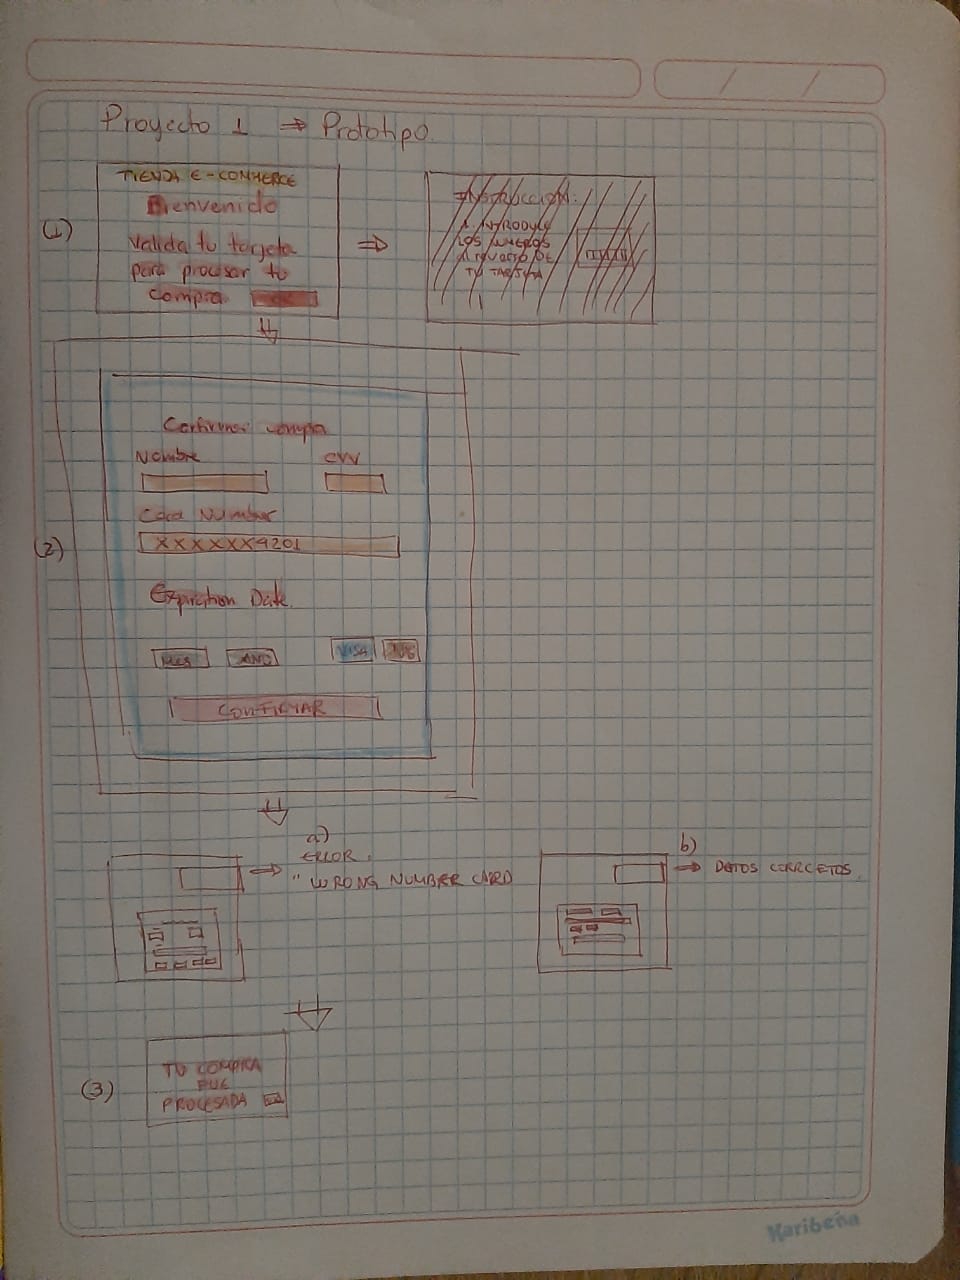 Proyecto 1 ⇒ Prototipo.
(1)
TIENDA E-COMMERCE
Bienvenido
Valida tu tarjeta
para procesar tu
compra.
INSTRUCCION:
INTRODUCE
LOS NUMEROS
DE
TU TARJETA
(2)
Confirmar compra
Nombre CVV
Card Number
XXXXXX4201
Expiration Date.
MES AÑO VISA
CONFIRMAR
a)
ERROR.
" WRONG NUMBER CARD
b)
DATOS CORRCETOS.
(3)
TU COMPRA
FUE
PROCESADA
Karibeña